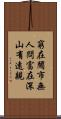 窮在閙市無
人問富在深
山有遠親